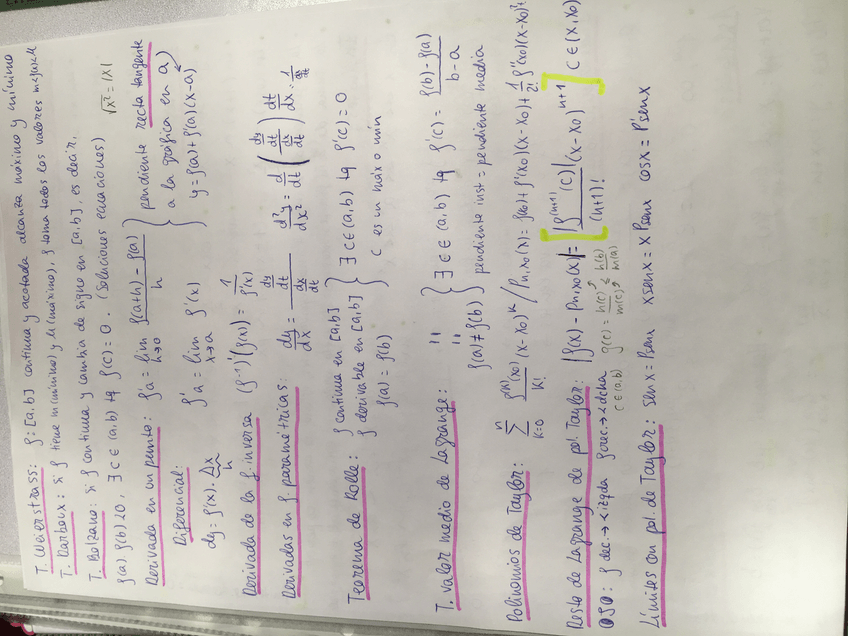 T. Weierstrass: f: [a,b] continua y acotada alcanza máximo y mínimo
T. Darboux: si f tiene m(mínimo) y M(máximo), f toma todos los valores
T. Bolzano: si f continua y cambia de signo en [a,b], es decir,
f(a) f(b) < 0, ∃ c ∈ (a,b) tq f(c) = 0. (Soluciones ecuaciones) √x² = |x|
Derivada en un punto: f'a = lim h→0 (f(a+h) - f(a))/h } pendiente recta tangente
Diferencial: f'a = lim x→a f'(x) a la gráfica en a
dy = f'(x). Δx h y = f(a) + f'(a)(x-a)
Derivada de la f. inversa (f⁻¹)'(f(x)) = 1/f'(x)
Derivadas en f. paramétricas: dy/dx = (dy/dt)/(dx/dt) d²y/dx² = d/dt ((dy/dt)/(dx/dt)) dt/dx · 1/(dx/dt)
Teorema de Rolle: f continua en [a,b]
f derivable en [a,b] } ∃ c ∈ (a,b) tq f'(c) = 0
f(a) = f(b) c es un máx o mín
T. valor medio de Lagrange: " " } ∃ c ∈ (a,b) tq f'(c) = (f(b) - f(a))/(b-a)
f(a) ≠ f(b) pendiente inst = pendiente media
Polinomios de Taylor: Σ k=0 n f^(k)(x0)/k! (x-x0)^k / Pn,x0(x) = f(x0) + f'(x0)(x-x0) + 1/2! f''(x0)(x-x0)²
Resto de Lagrange de pol. Taylor: |f(x) - Pn,x0(x)| = [ |f^(n+1)(c)|/(n+1)! (x-x0)^(n+1) ] c ∈ (x,x0)
OJO: f dec. → < izqda f crec. → < dcha
c ∈ (a,b) g(c) = h(c)/m(c) ≤ h(b)/m(a)
Límites con pol. de Taylor: sen x = Psenx x sen x = x Psenx cos x = P'senx